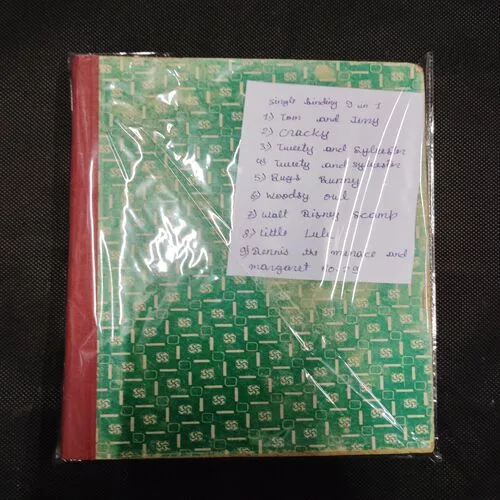 single binding 9 in 1
1) Tom and Jerry
2) Cracky
3) Tweety and Sylvester
4) Tweety and Sylvester
5) Bugs Bunny
6) Woodsy owl
7) Walt Disney Scamp
8) Little Lulu
9) Dennis the menace and
margaret No-29